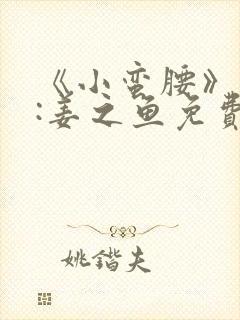 《小蛮腰》
:姜之鱼免费
姚锴夫